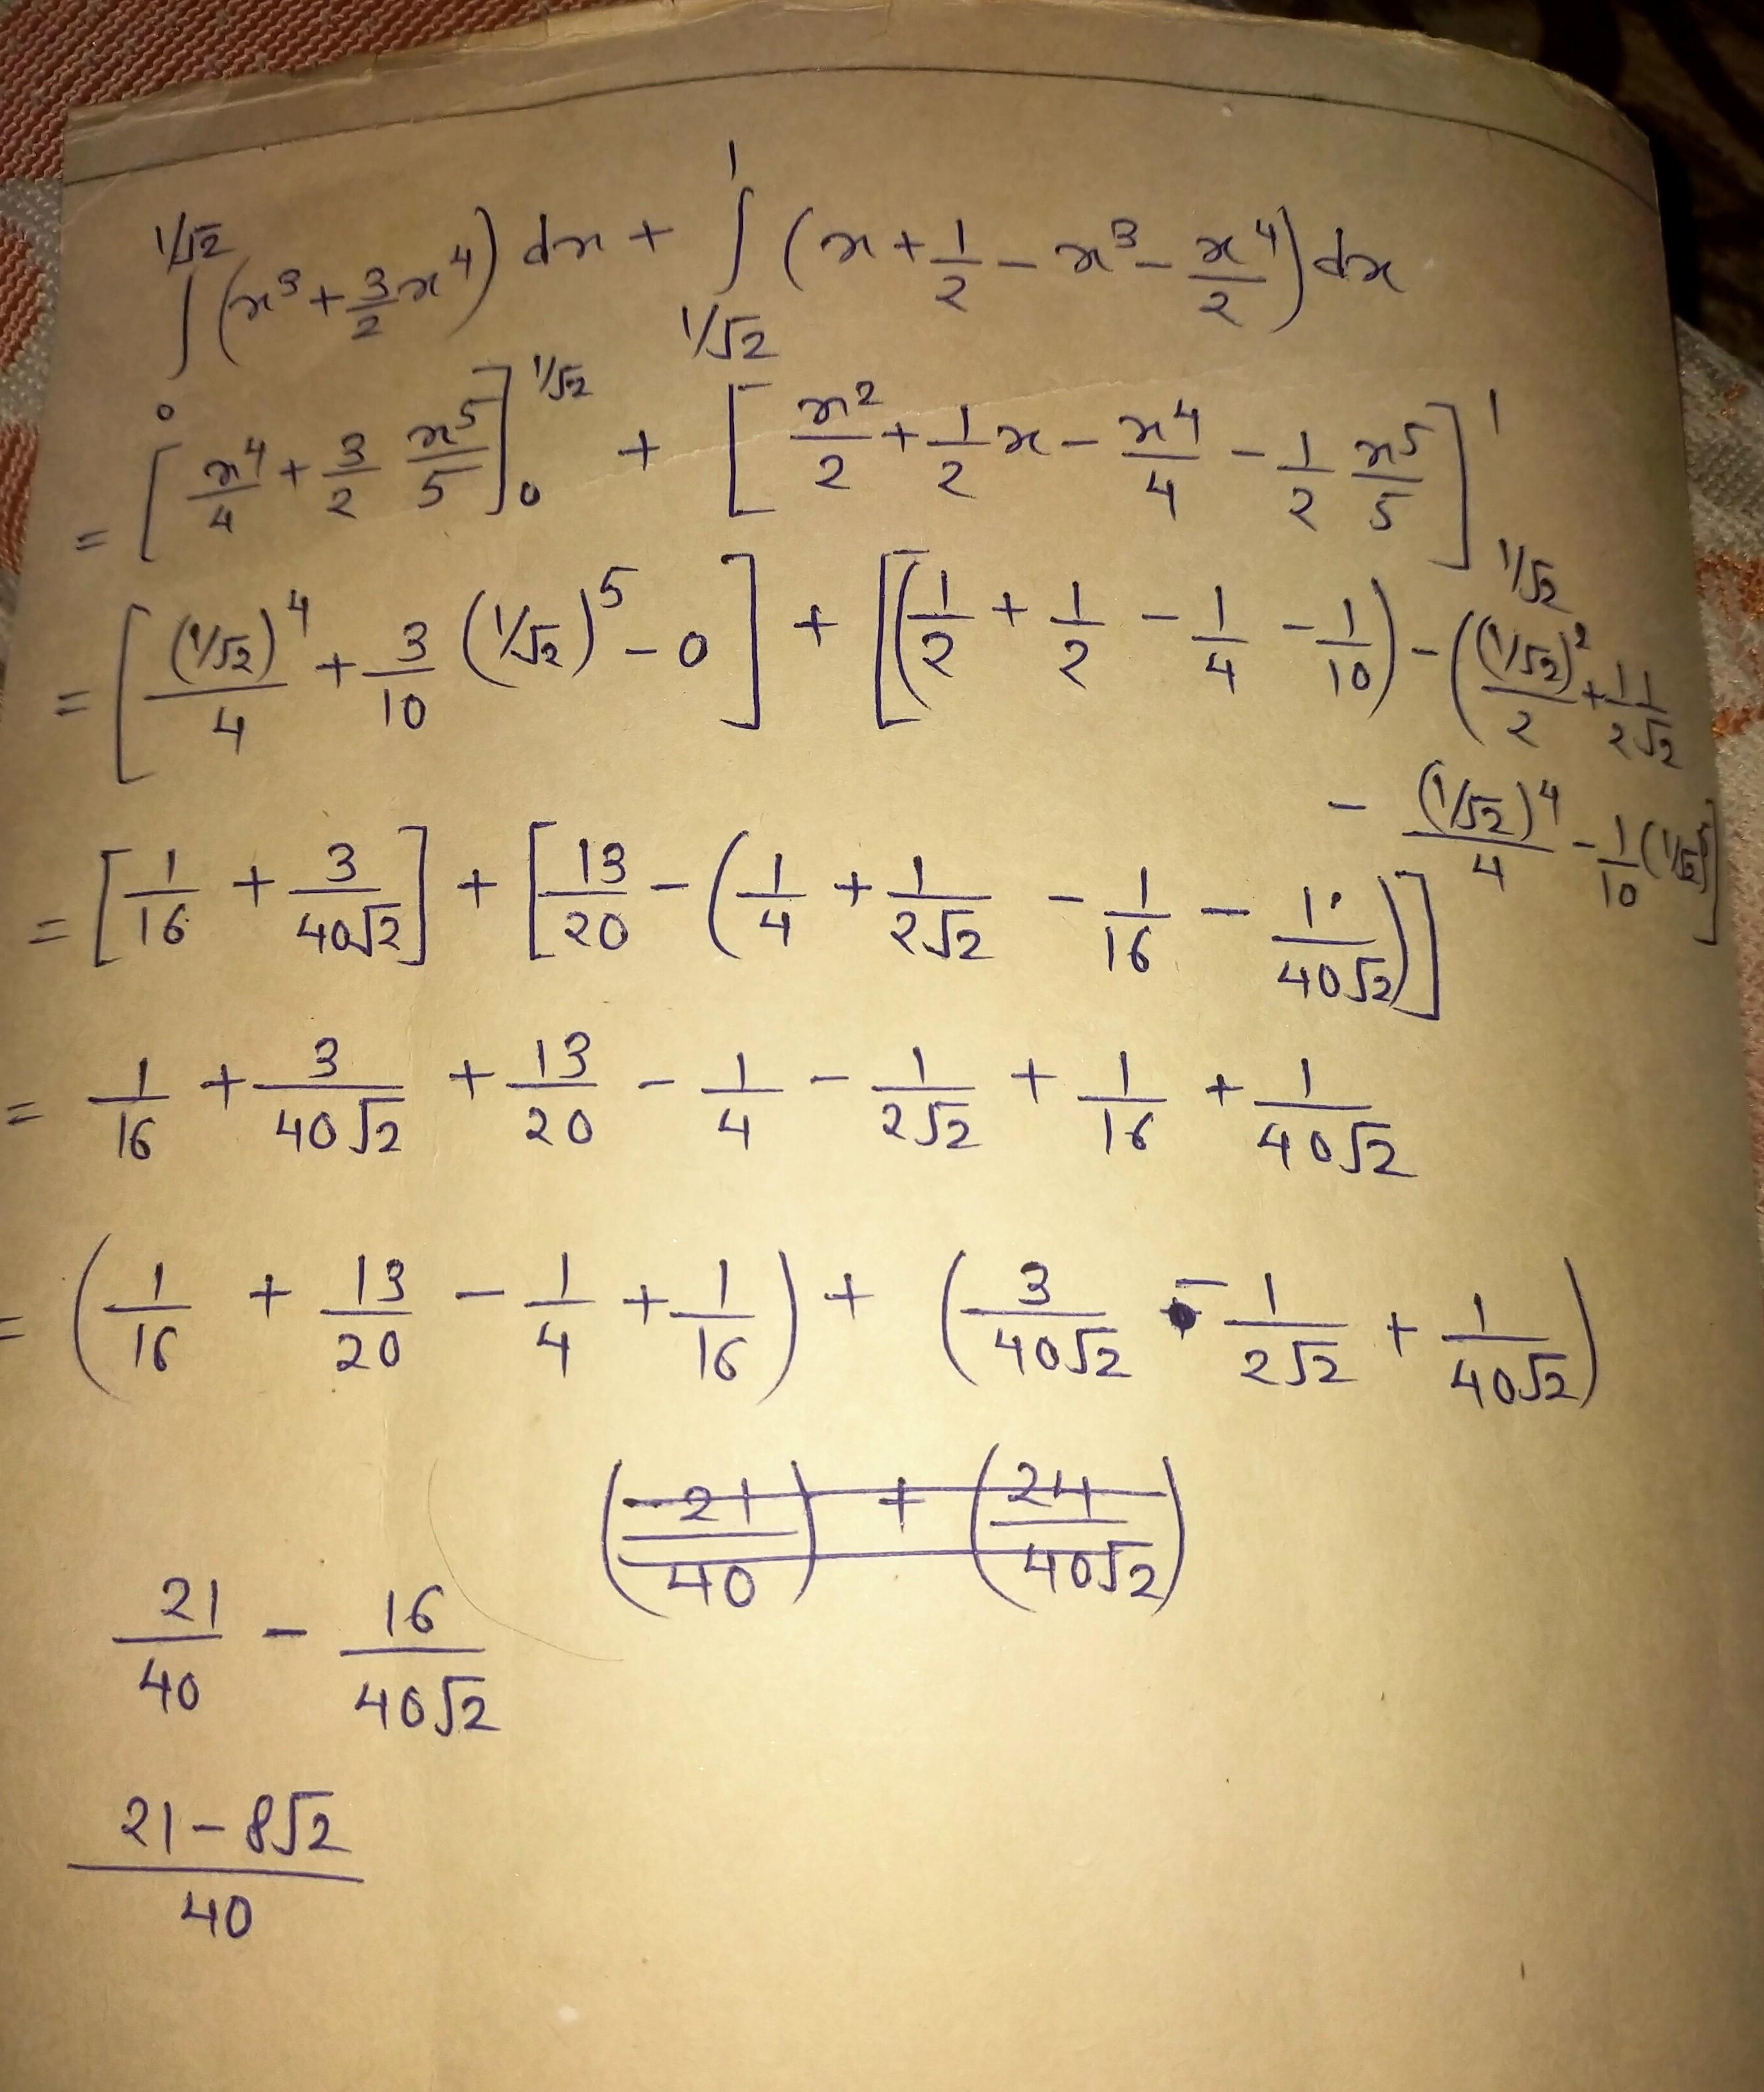 ∫₀^{1/√2} (x³ + 3/2 x⁴) dx + ∫_{1/√2}^{1} (x + 1/2 − x³ − x⁴/2) dx
= [x⁴/4 + 3/2 x⁵/5]₀^{1/√2} + [x²/2 + 1/2 x − x⁴/4 − 1/2 x⁵/5]_{1/√2}^{1}
= [(1/√2)⁴/4 + 3/10 (1/√2)⁵ − 0] + [(1/2 + 1/2 − 1/4 − 1/10) − ((1/√2)²/2 + 1/2 1/√2
− (1/√2)⁴/4 − 1/10 (1/√2)⁵]
= [1/16 + 3/40√2] + [13/20 − (1/4 + 1/2√2 − 1/16 − 1/40√2)]
= 1/16 + 3/40√2 + 13/20 − 1/4 − 1/2√2 + 1/16 + 1/40√2
= (1/16 + 13/20 − 1/4 + 1/16) + (3/40√2 − 1/2√2 + 1/40√2)
(21/40) + (24/40√2)
21/40 − 16/40√2
21 − 8√2 / 40